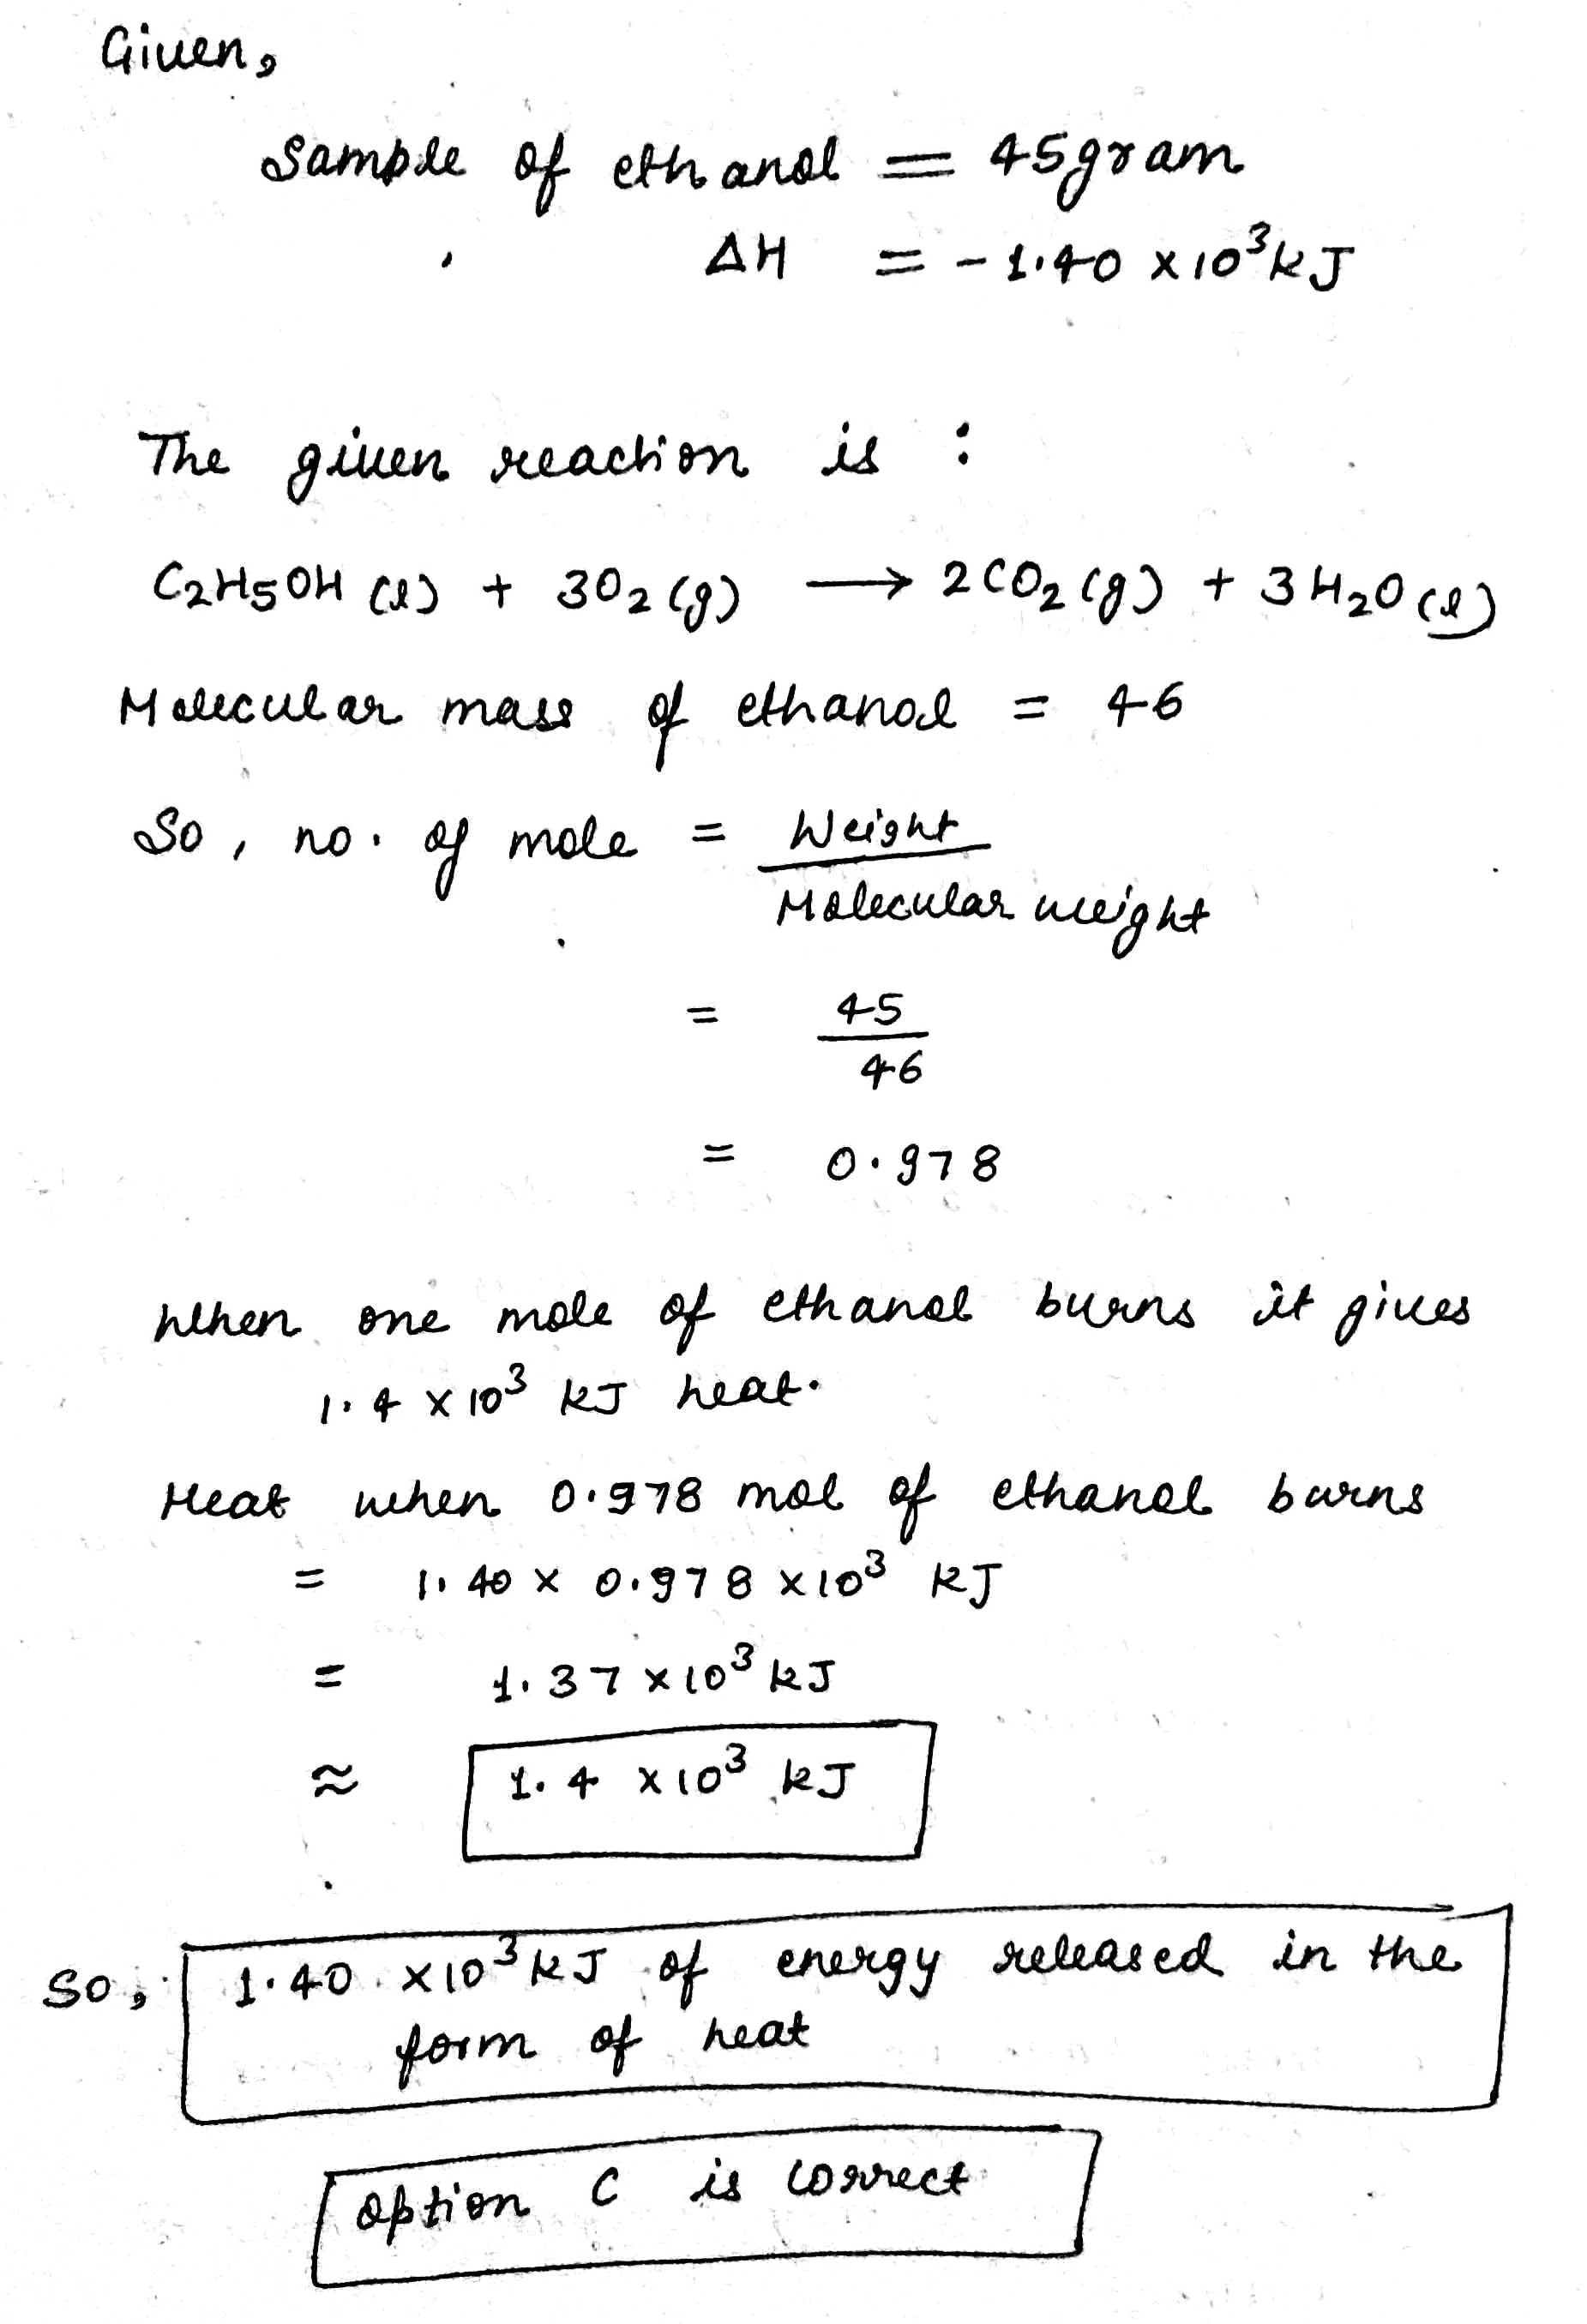 Given,
Sample of ethanol = 45gram
ΔH = - 1.40 × 10³ kJ
The given reaction is :
C₂H₅OH (l) + 3O₂ (g) ⟶ 2CO₂ (g) + 3H₂O (l)
Molecular mass of ethanol = 46
So, no. of mole = Weight
Molecular weight
= 45
46
= 0.978
When one mole of ethanol burns it gives
1.4 × 10³ kJ heat.
Heat when 0.978 mol of ethanol burns
= 1.40 × 0.978 × 10³ kJ
= 1.37 × 10³ kJ
≈ 1.4 × 10³ kJ
So, 1.40 × 10³ kJ of energy released in the
form of heat
option C is correct